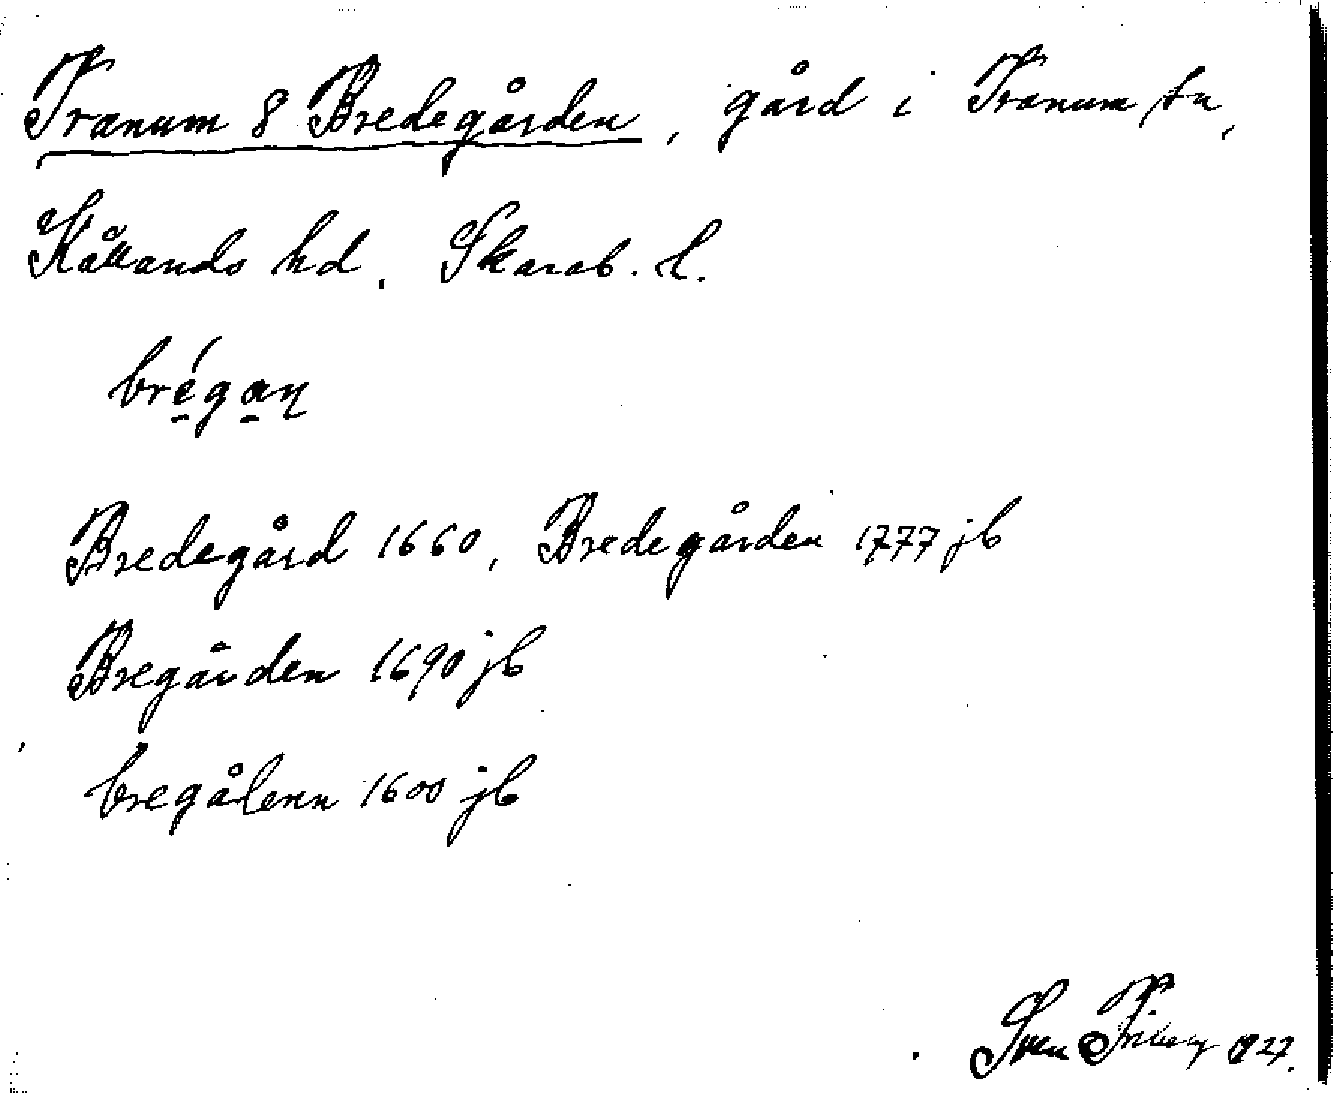 Tranum 8 Bredegården, gård i Tranum sn,
Kållands hd. Skarab. l.
brégan
Bredegård 1660, Bredegården 1777 jb
Bregården 1690 jb
bregålenn 1600 jb
Sven Friberg 927.